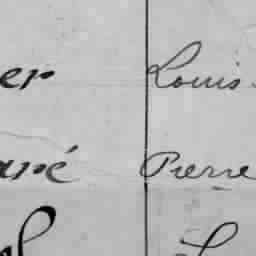 er Louis
aré Pierre